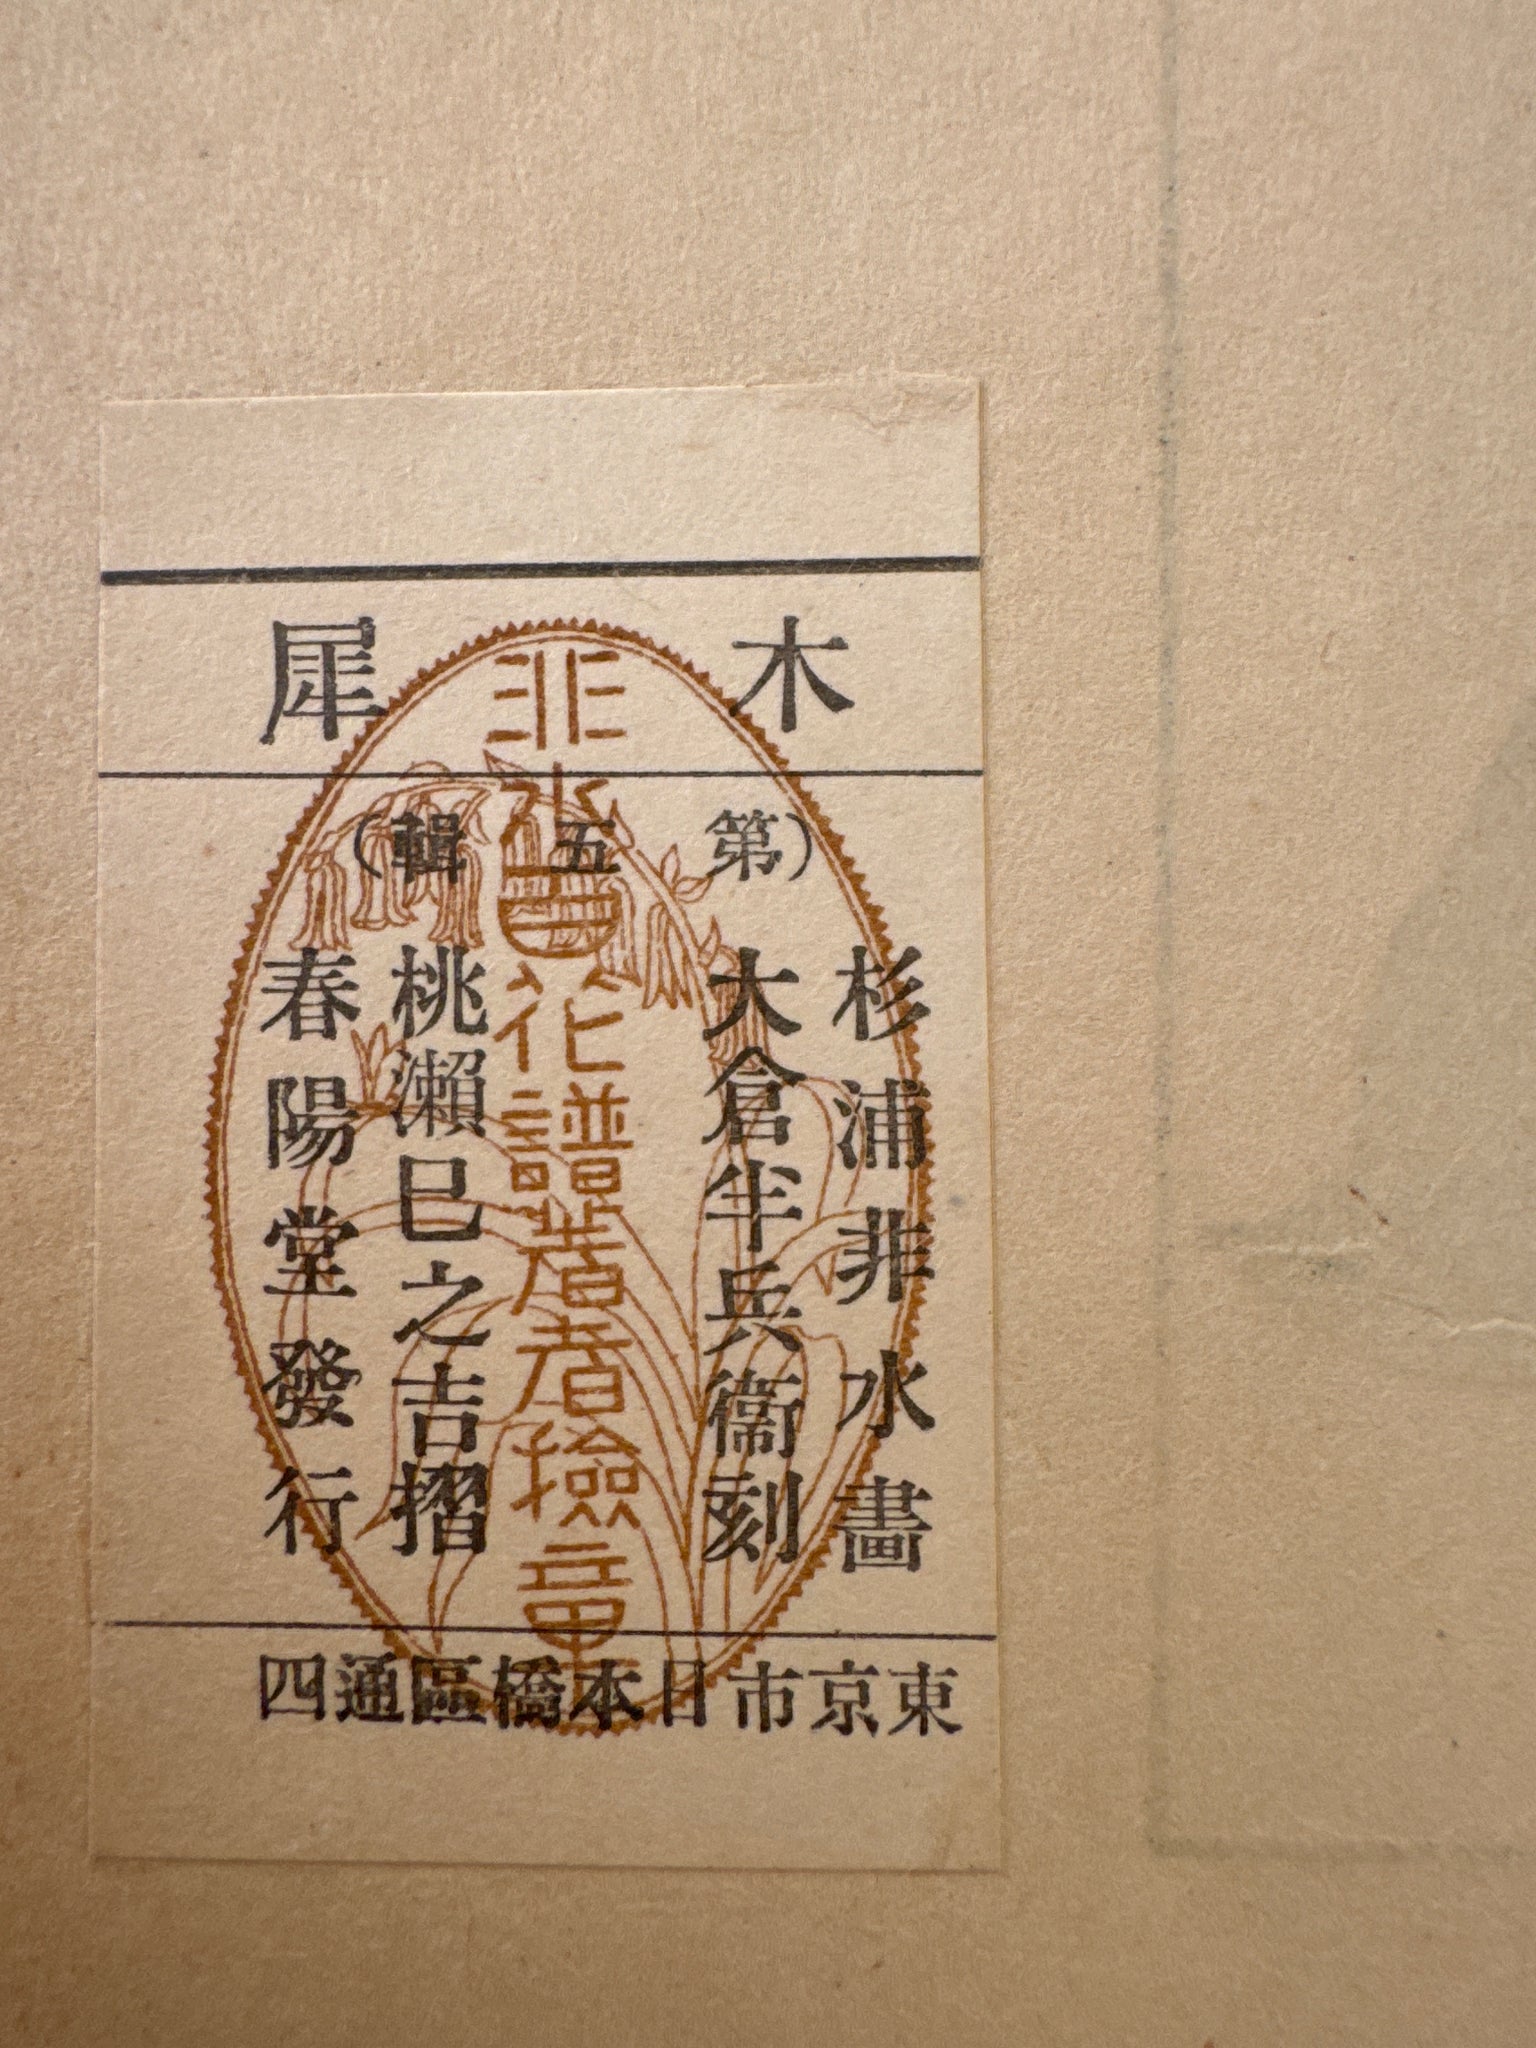 木犀
(第五輯)
杉浦非水畫
大倉半兵衞刻
桃瀨巳之吉摺
春陽堂發行
東京市日本橋區通四
非水百花譜著者檢章